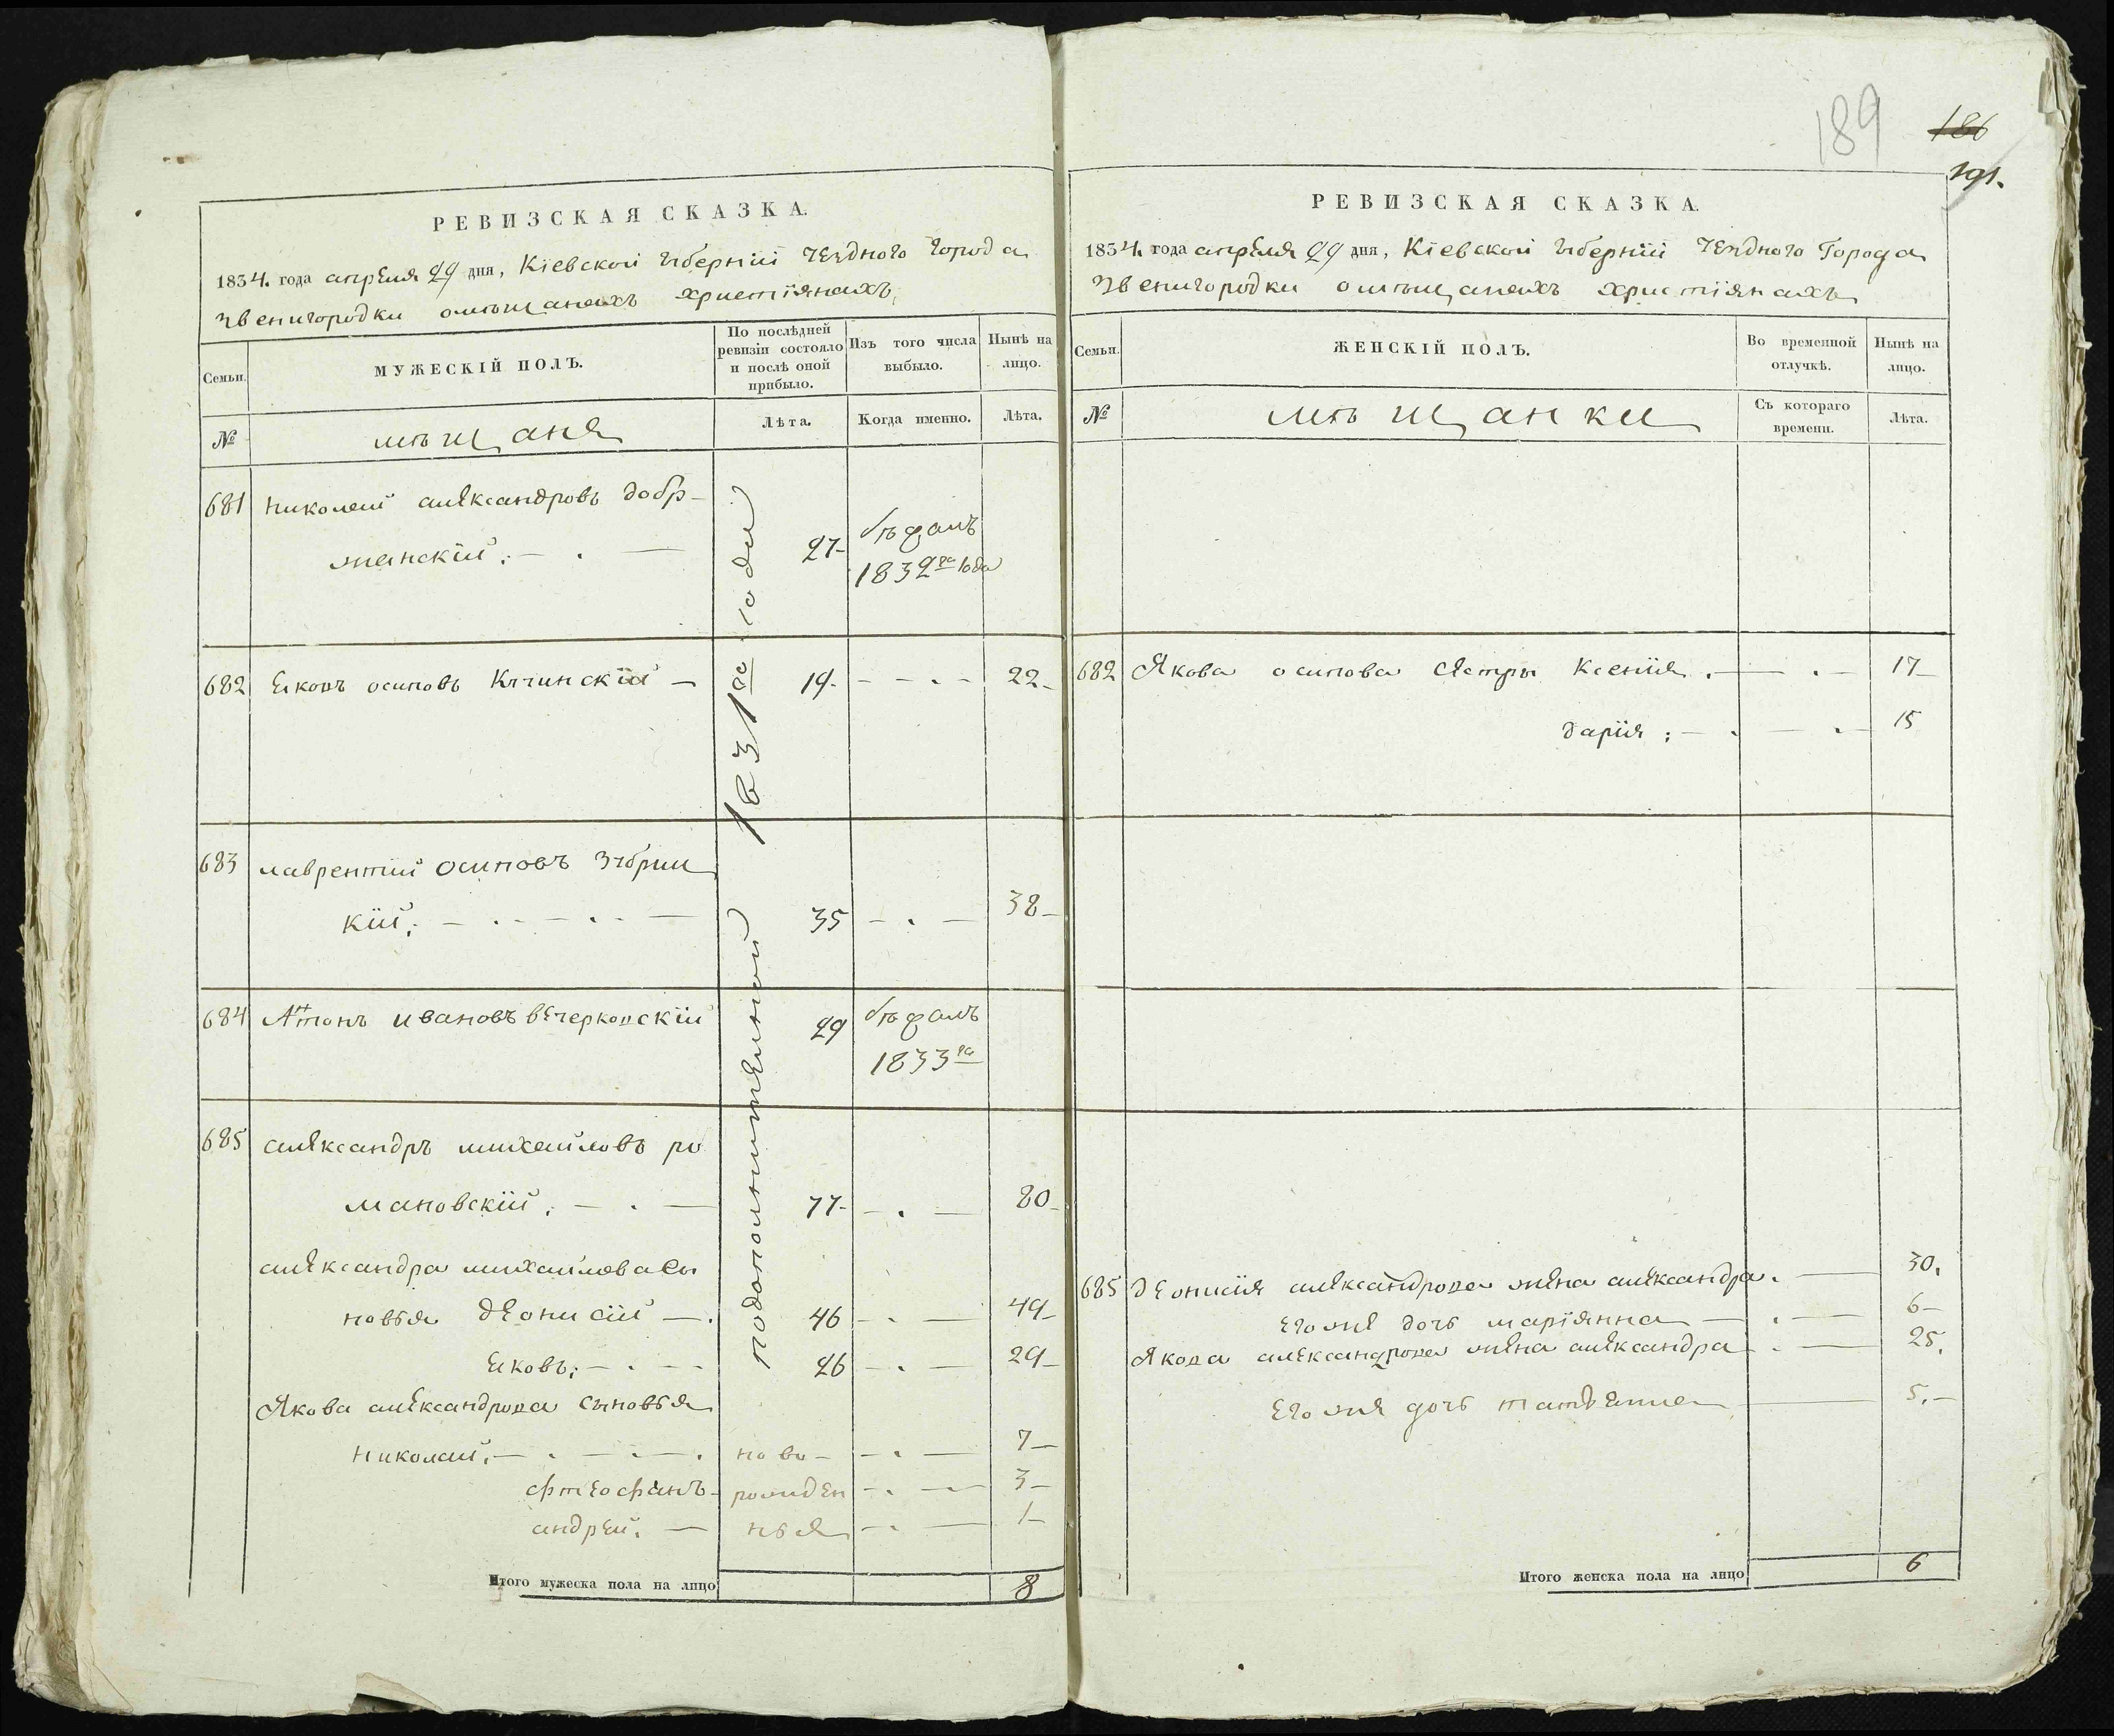 РЕВИЗСКАЯ СКАЗКА.
1834. года апреля 29 дня, Кіевской губерніи уездного города
звенигородки омѣщанахъ христіянахъ
Семьи.
МУЖЕСКІЙ ПОЛЪ.
По послѣдней ревизіи состояло и послѣ оной прибыло.
Изъ того числа выбыло.
Нынѣ на лицо.
№
мѣщаня
Лѣта.
Когда именно.
Лѣта.
подополнителной 1831го года
681 николай александровъ добр-
жанскій. 27 бѣжалъ
1832го года
682 Яковъ осиповъ Кучинскій 19. 22
683 лаврентій осиповъ Збриц
кій. 35 38
684 Антонъ ивановъ вечерковскій 29 бѣжалъ
1833го
685 александръ михайловъ ро
мановскій. 77 80
александра михайлова сы
новья деонисій 46 49
Яковъ. 26 29
Якова александрова сыновья
николай. ново- 7
фтеофанъ рожден 3
андрей. ныя 1
Итого мужеска пола на лицо 8
189
186
191.
РЕВИЗСКАЯ СКАЗКА.
1834. года апреля 29 дня, Кіевской губерніи уездного Города
звенигородки омѣщанахъ христіянахъ
Семьи.
ЖЕНСКІЙ ПОЛЪ.
Во временной отлучкѣ.
Нынѣ на лицо.
№
мѣщанки
Съ котораго времени.
Лѣта.
682 Якова осипова сестры ксенія. 17
дарія; 15
685 деонисія александрова жена александра. 30.
его же дочь маріянна 6
Якова александрова жена александра 25.
его же дочь татьянна 5.
Итого женска пола на лицо 6